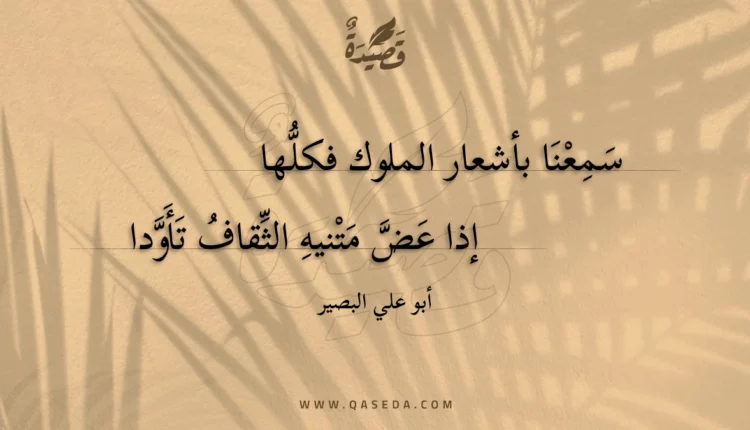 قَصِيْدَةٌ
سَمِعْنَا بأشعار الملوك فكلُّها
إذا عَضَّ مَتْنيهِ الثِّقافُ تَأَوَّدا
أبو علي البصير
WWW.QASEDA.COM